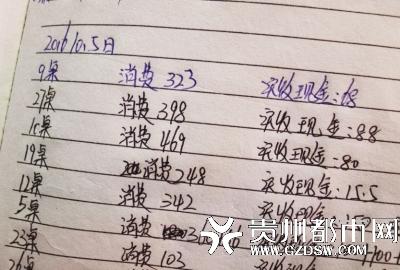 2016.10.5日
9桌 消费 323 实收现金:68
27桌 消费 398 实收现金:88
1c桌 消费 469 实收现金:80
19桌 消费 248 实收现金:15.5
12桌 消费 342 实收现金:
5桌 消费
23桌 消费 103
贵州都市网
GZDSW.COM